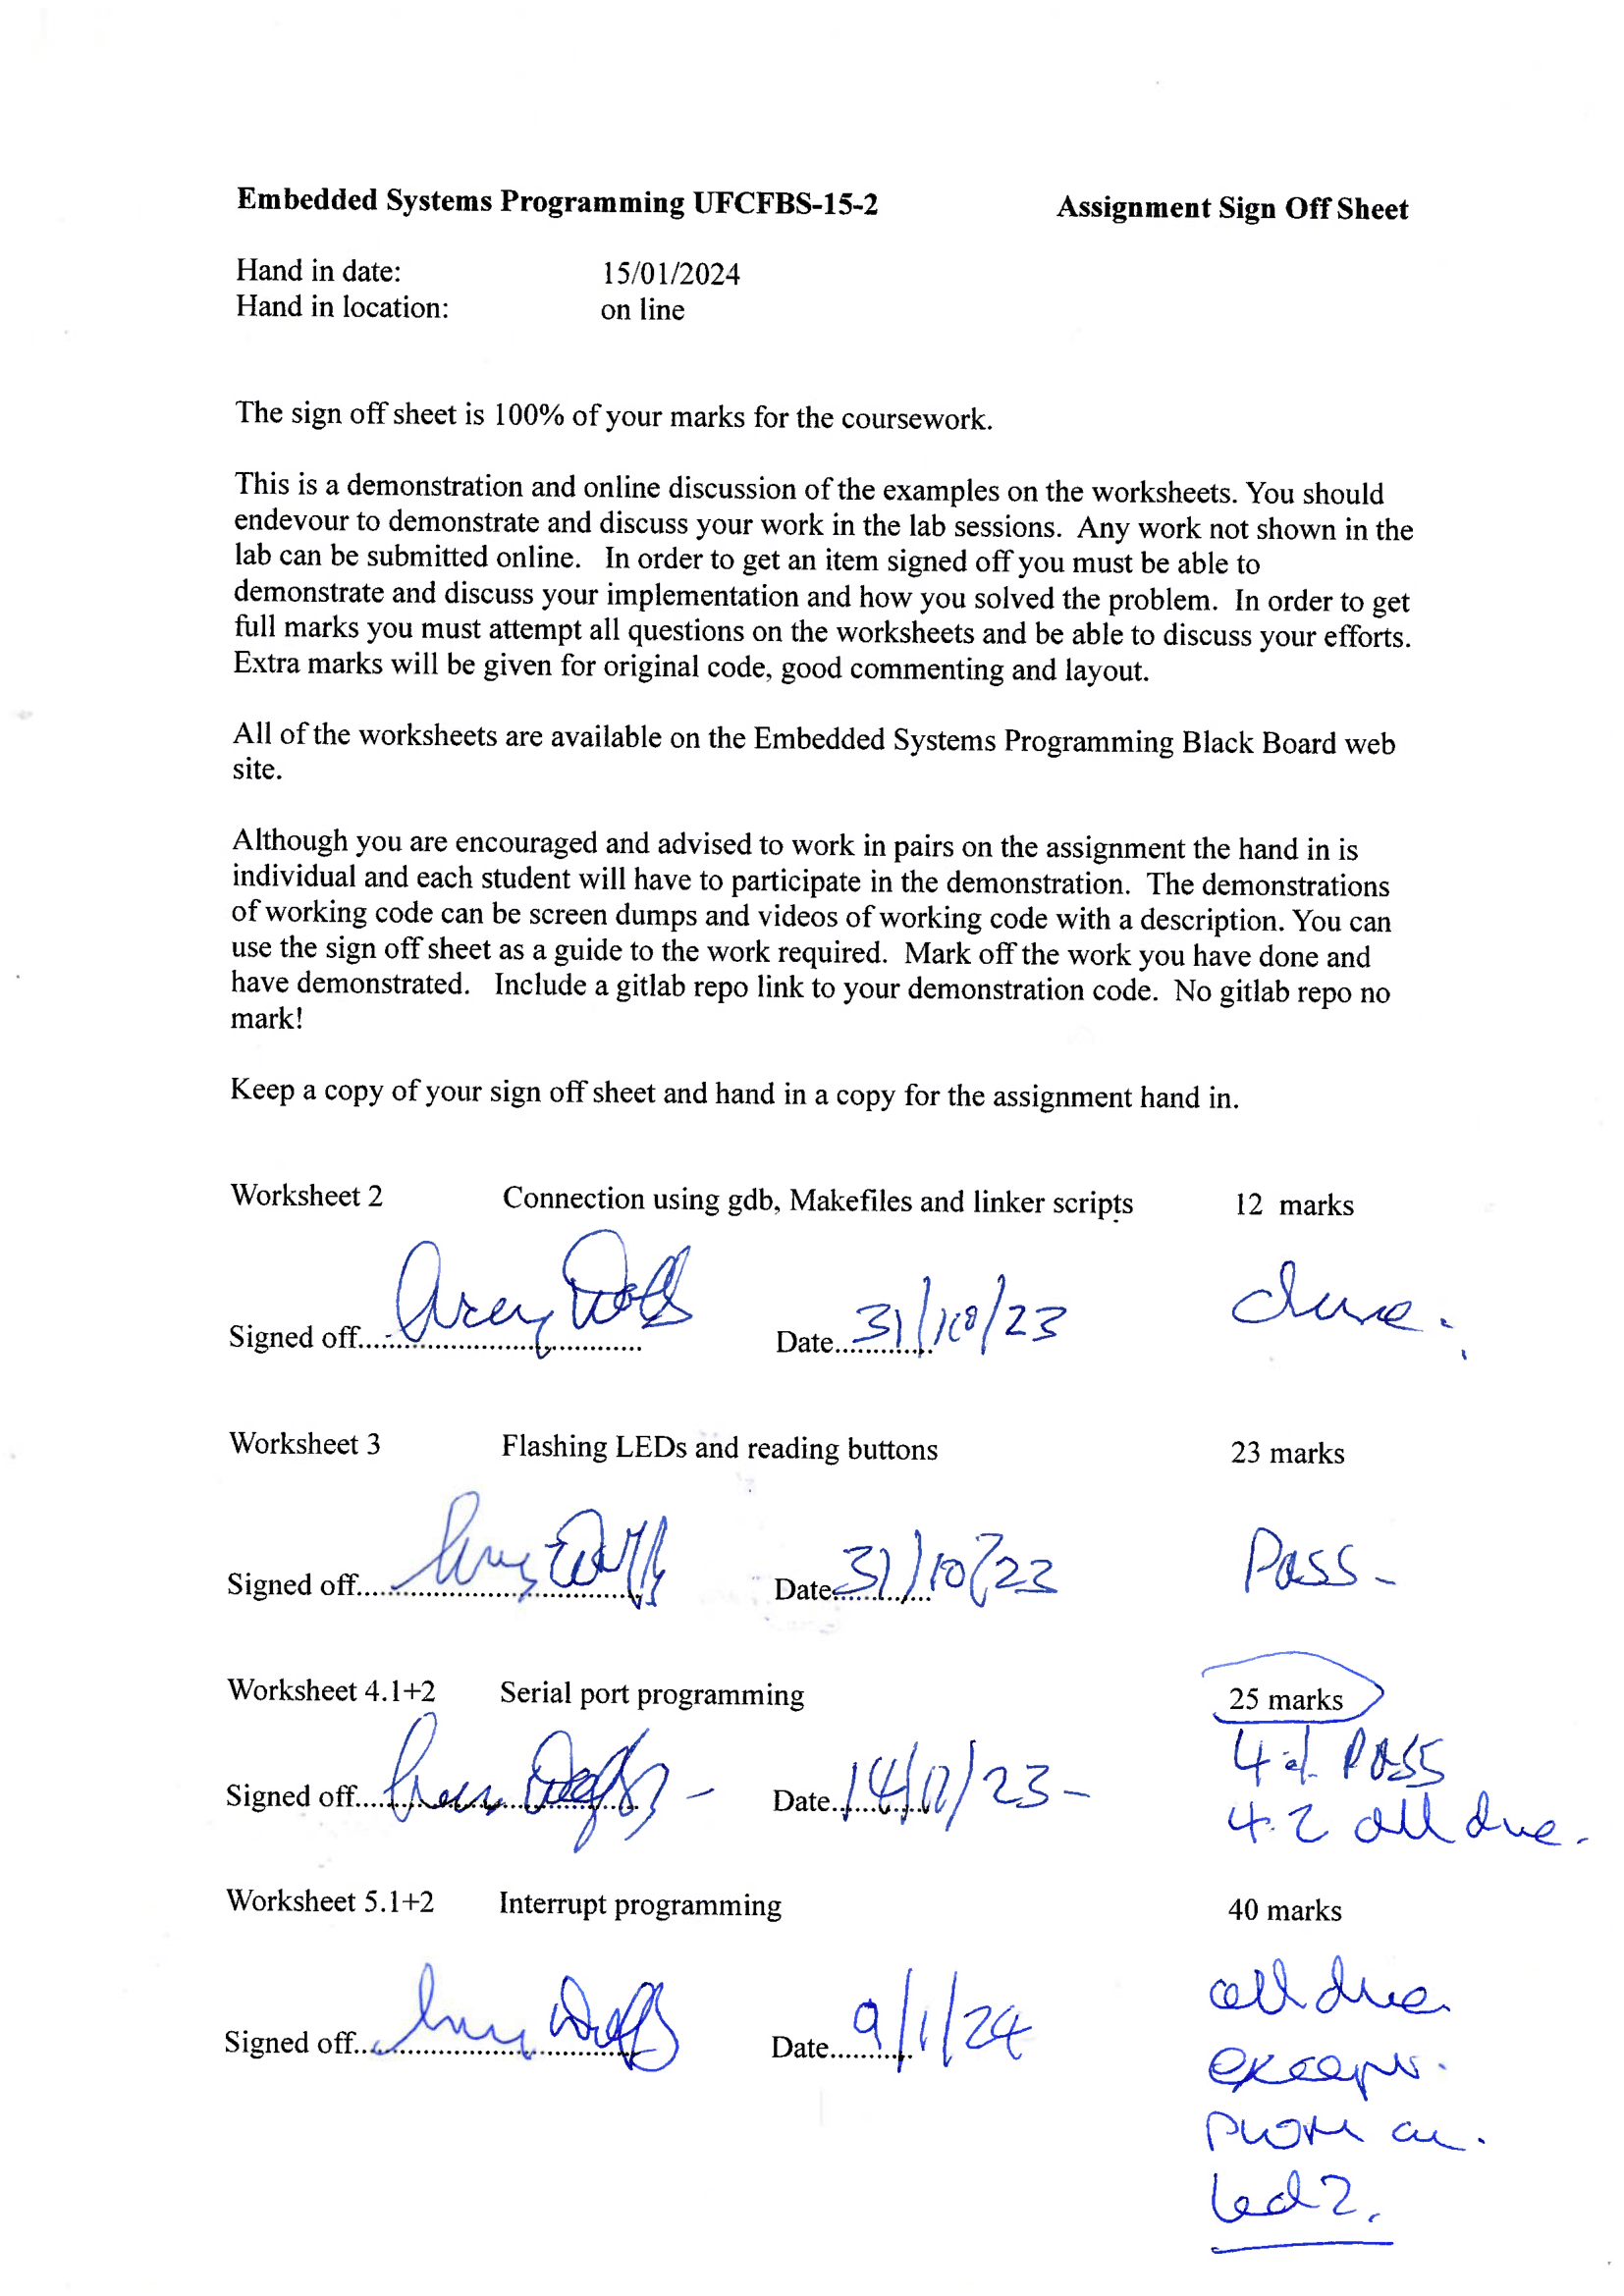 Embedded Systems Programming UFCFBS-15-2 Assignment Sign Off Sheet
Hand in date: 15/01/2024
Hand in location: on line
The sign off sheet is 100% of your marks for the coursework.
This is a demonstration and online discussion of the examples on the worksheets. You should
endevour to demonstrate and discuss your work in the lab sessions. Any work not shown in the
lab can be submitted online. In order to get an item signed off you must be able to
demonstrate and discuss your implementation and how you solved the problem. In order to get
full marks you must attempt all questions on the worksheets and be able to discuss your efforts.
Extra marks will be given for original code, good commenting and layout.
All of the worksheets are available on the Embedded Systems Programming Black Board web
site.
Although you are encouraged and advised to work in pairs on the assignment the hand in is
individual and each student will have to participate in the demonstration. The demonstrations
of working code can be screen dumps and videos of working code with a description. You can
use the sign off sheet as a guide to the work required. Mark off the work you have done and
have demonstrated. Include a gitlab repo link to your demonstration code. No gitlab repo no
mark!
Keep a copy of your sign off sheet and hand in a copy for the assignment hand in.
Worksheet 2 Connection using gdb, Makefiles and linker scripts 12 marks
Signed off Date 31/10/23
Worksheet 3 Flashing LEDs and reading buttons 23 marks
Signed off Date 31/10/23 Pass
Worksheet 4.1+2 Serial port programming 25 marks
4.1 PASS
Signed off Date
4.2 all done.
Worksheet 5.1+2 Interrupt programming 40 marks
all done
Signed off Date 9/1/24
except
led 2.